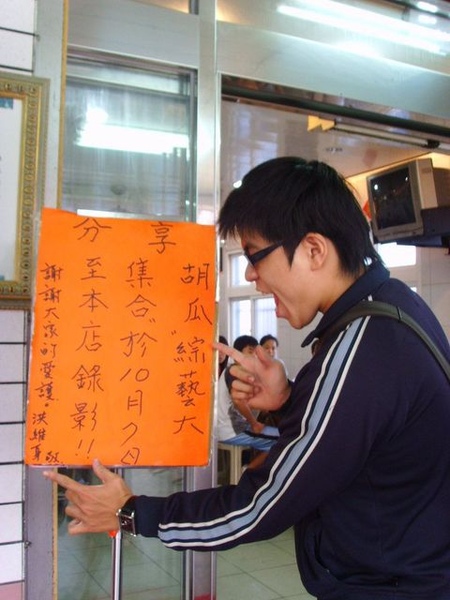 分享
胡瓜“綜藝大
集合”於10月7日
至本店錄影!!
謝謝大家的愛護。洪維 敬